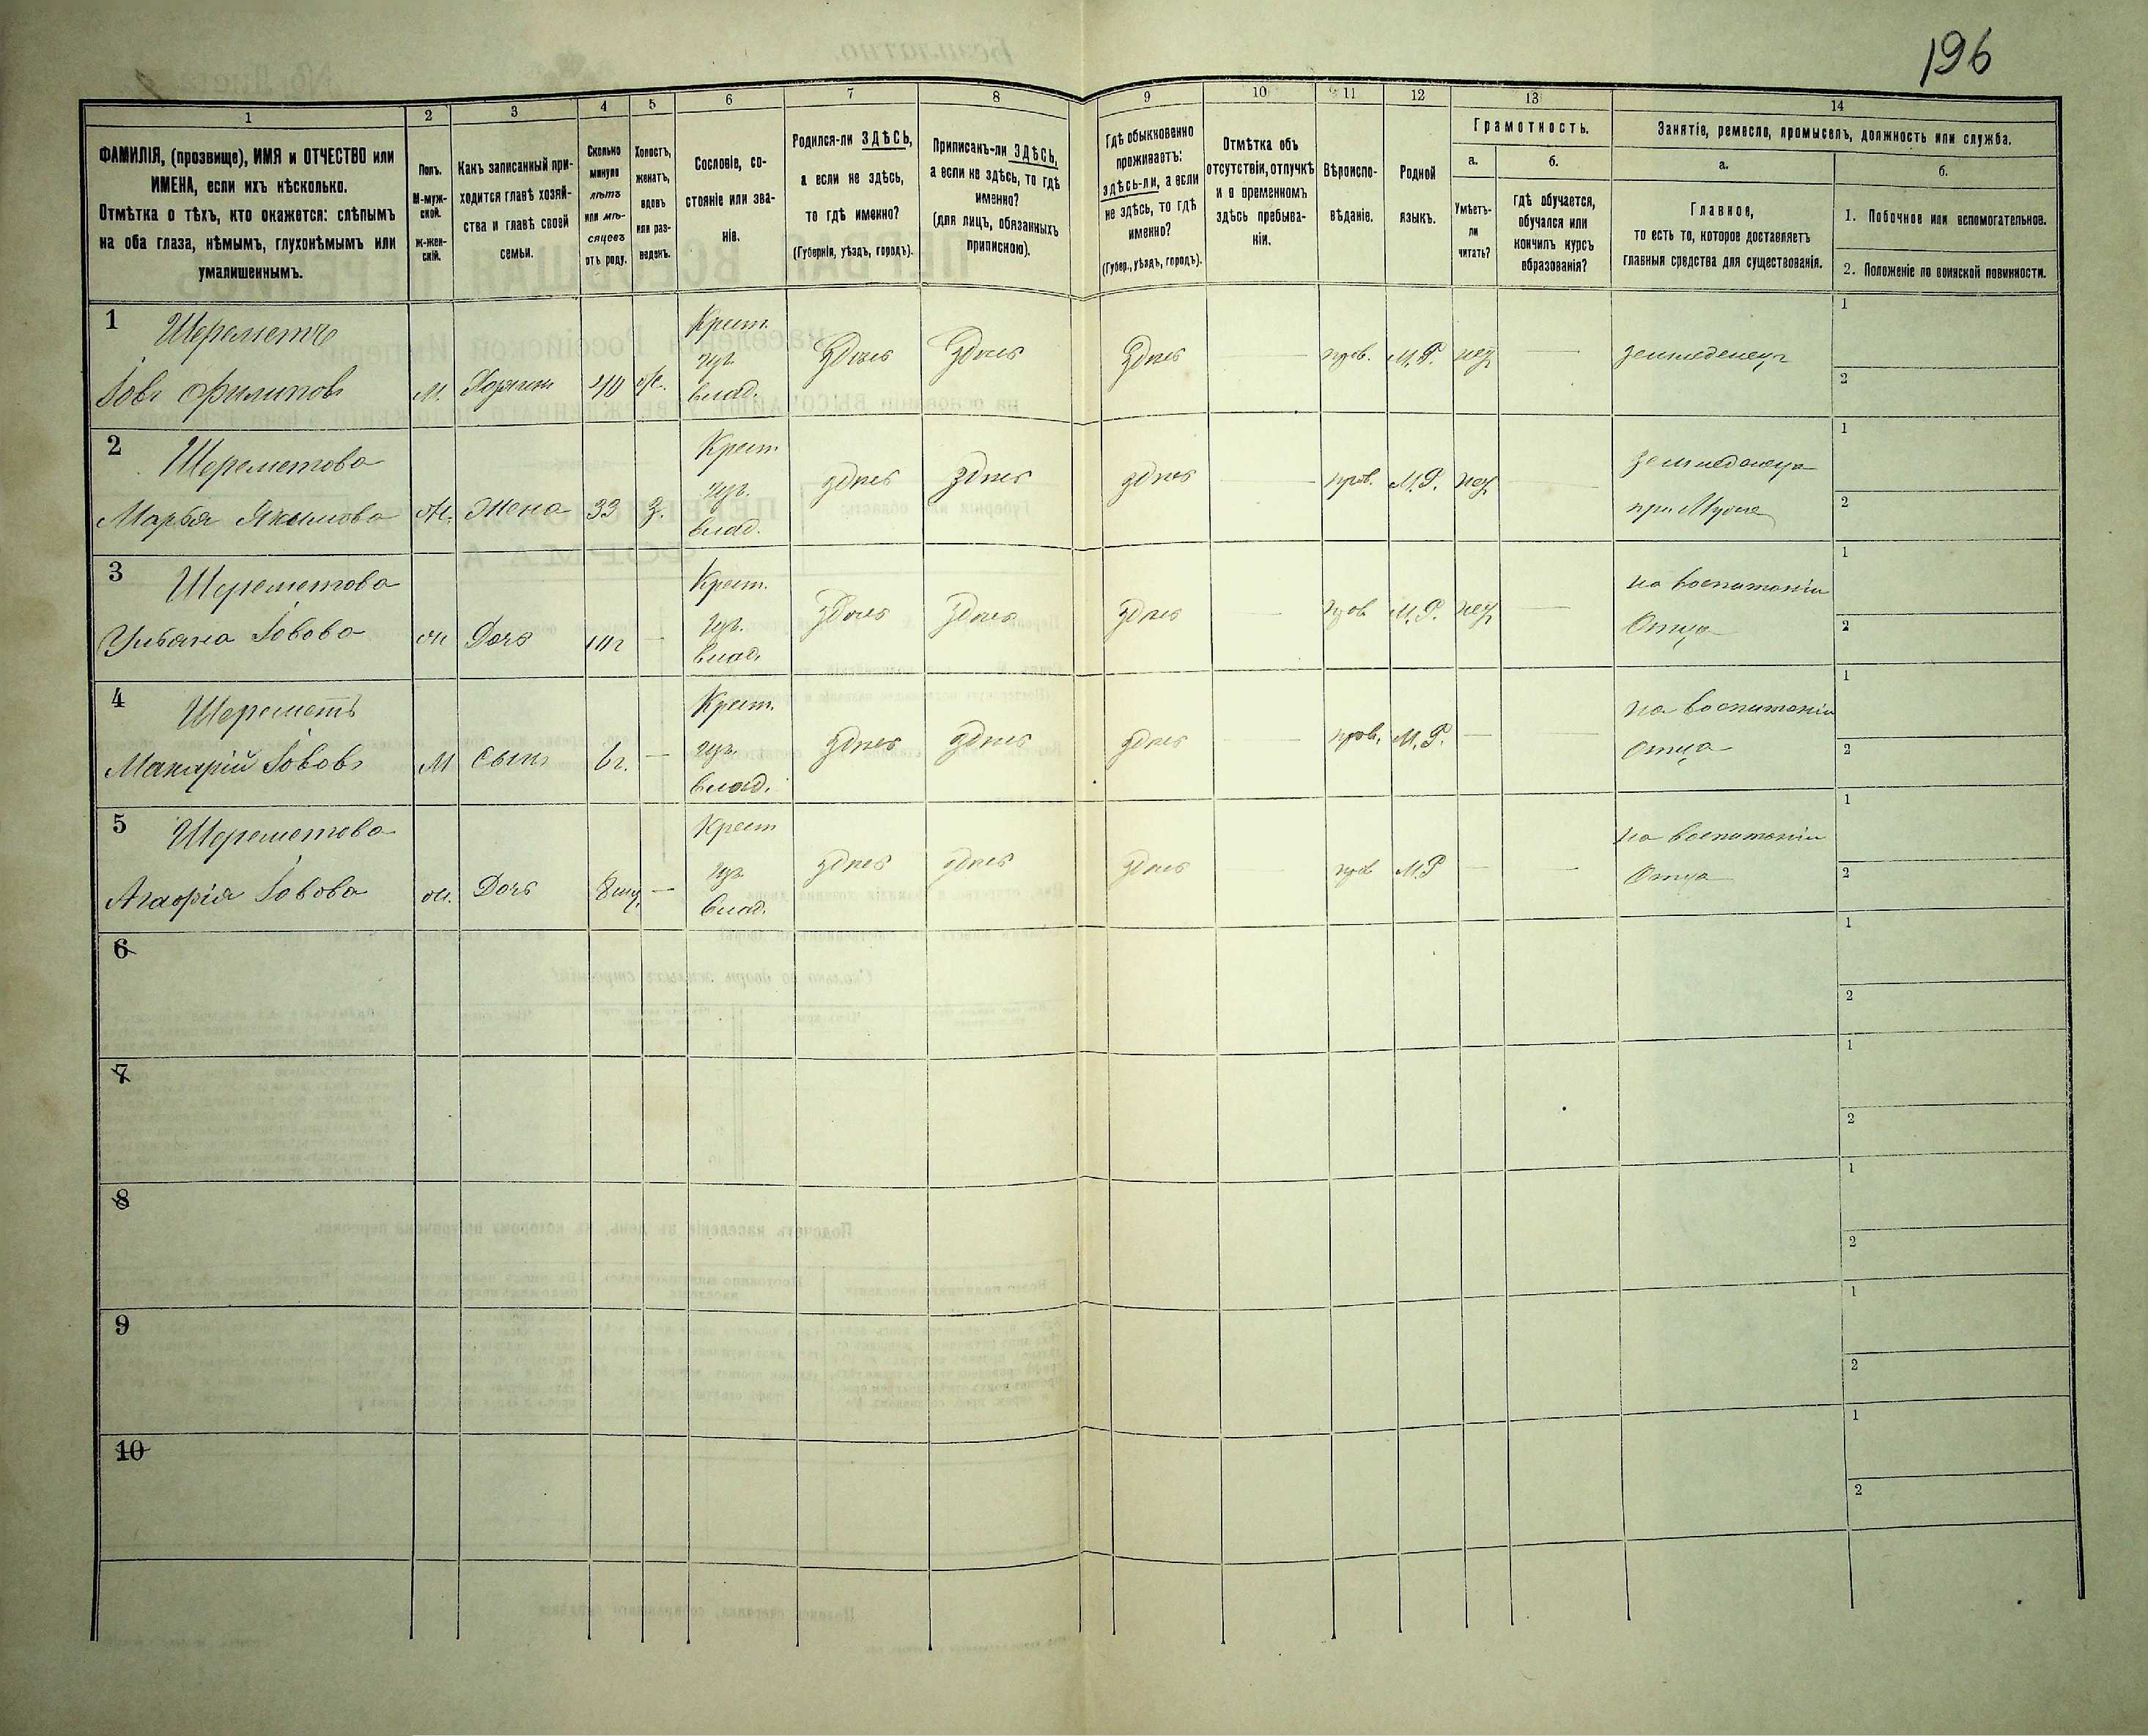 196
1
2
3
4
5
6
7
8
9
10
11
12
13
14
ФАМИЛІЯ, (прозвище), ИМЯ и ОТЧЕСТВО или
ИМЕНА, если ихъ нѣсколько.
Отмѣтка о тѣхъ, кто окажется: слѣпымъ
на оба глаза, нѣмымъ, глухонѣмымъ или
умалишеннымъ.
Полъ.
М-муж-
ской.
ж-жен-
скій.
Какъ записанный при-
ходится главѣ хозяй-
ства и главѣ своей
семьи.
Сколько
минуло
лѣтъ
или мѣ-
сяцевъ
отъ роду.
Холостъ,
женатъ,
вдовъ
или раз-
веденъ.
Сословіе, со-
стояніе или зва-
ніе.
Родился-ли ЗДѢСЬ,
а если не здѣсь,
то гдѣ именно?
(Губернія, уѣздъ, городъ).
Приписанъ-ли ЗДѢСЬ,
а если не здѣсь, то гдѣ
именно?
(для лицъ, обязанныхъ
припискою).
Гдѣ обыкновенно
проживаетъ:
здѣсь-ли, а если
не здѣсь, то гдѣ
именно?
(Губер., уѣздъ, городъ).
Отмѣтка объ
отсутствіи, отлучкѣ
и о временномъ
здѣсь пребыва-
ніи.
Вѣроиспо-
вѣданіе.
Родной
языкъ.
Грамотность.
а.
б.
Умѣетъ-
ли
читать?
гдѣ обучается,
обучался или
кончилъ курсъ
образованія?
Занятіе, ремесло, промыселъ, должность или служба.
а.
б.
Главное,
то есть то, которое доставляетъ
главныя средства для существованія.
1. Побочное или вспомогательное.
2. Положеніе по воинской повинности.
1 Шереметъ Крест.
Іовъ Филиповъ М. Хозяинъ 40 Ж. влад. здѣсь здѣсь здѣсь — прав. М.Р. нетъ — земледелецъ
1
2
2 Шереметова Крест.
Марья Якимова Ж. Жена 33 З. влад. здѣсь здѣсь здѣсь — прав. М.Р. нетъ — земледелица
при Мужѣ
1
2
3 Шереметова Крест.
Ульяна Іовова Ж Дочь — влад. здѣсь здѣсь здѣсь — прав М.Р. нетъ — на воспитаніи
Отца
1
2
4 Шереметъ Крест.
Макарій Іововъ М Сынъ 6г. — влад. здѣсь здѣсь здѣсь — прав. М.Р. — — на воспитаніи
Отца
1
2
5 Шереметова Крест
Агафія Іовова Ж. Дочь — влад. здѣсь здѣсь здѣсь — прав М.Р — — на воспитаніи
Отца
1
2
6
1
2
7
1
2
8
1
2
9
1
2
10
1
2